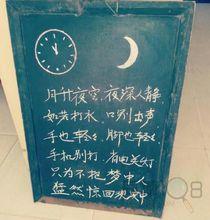 月升夜空,夜深人静
如若打水,口别出声
手也轻轻,脚也轻轻
手机别打,有电关灯
只为不扰梦中人
猛然惊回现实中